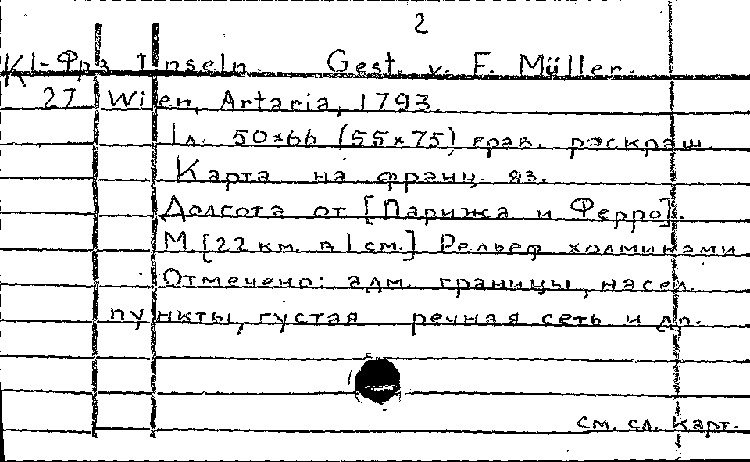 2
Kl-Фрз Inseln. Gest. v. F. Müller.
27 Wien, Artaria, 1793.
1л. 50×66 (55×75) грав. раскраш.
Карта на франц. яз.
Долгота от [Парижа и Ферро].
М. [22 км. в 1 см.] Рельеф холмиками
Отмечено: адм. границы, насел.
пункты, густая речная сеть и др.
см. сл. карт.